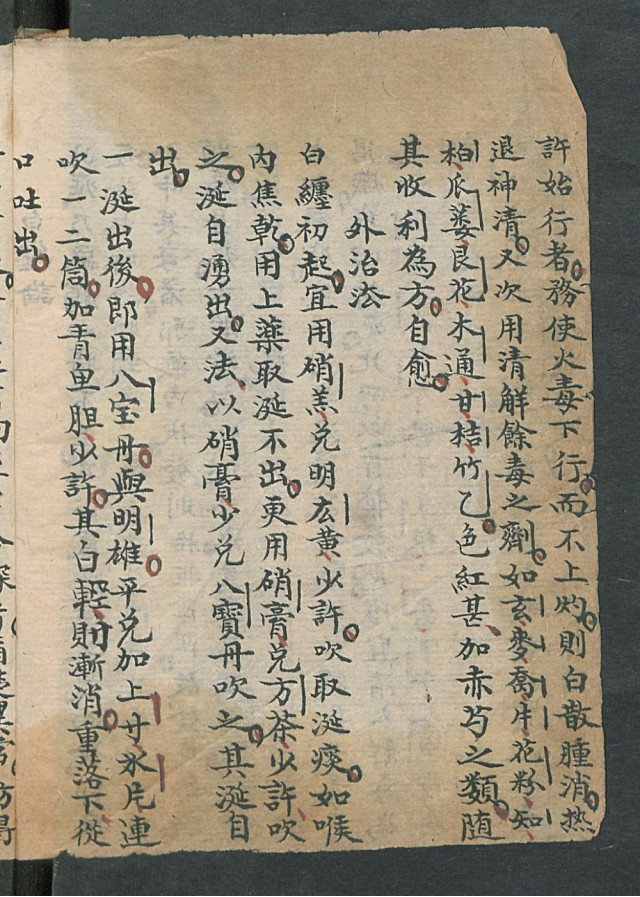 許始行者。務使火毒下行。而不上灼。則白散腫消。热
退神清。又次用清解餘毒之劑。如玄麥喬片花粉、知
柏、瓜蔞、良花、木通、甘桔、竹乙。色紅甚、加赤芍之類。随
其收利為方。自愈。
外治法
白纏初起。宜用硝羔、兑明玄黄、少許。吹取涎痰。如喉
内焦乾。用上藥取涎不出。更用硝膏、兑方茶、少許、吹
之。涎自湧出。又法、以硝膏、少兑八寶丹吹之。其涎自
出。
一涎出後。即用八宝丹。與明雄。平兑加上廾、氷片連
吹一二筒。加青鱼胆、少許。其白輕、則漸消。重落下、從
口吐出。